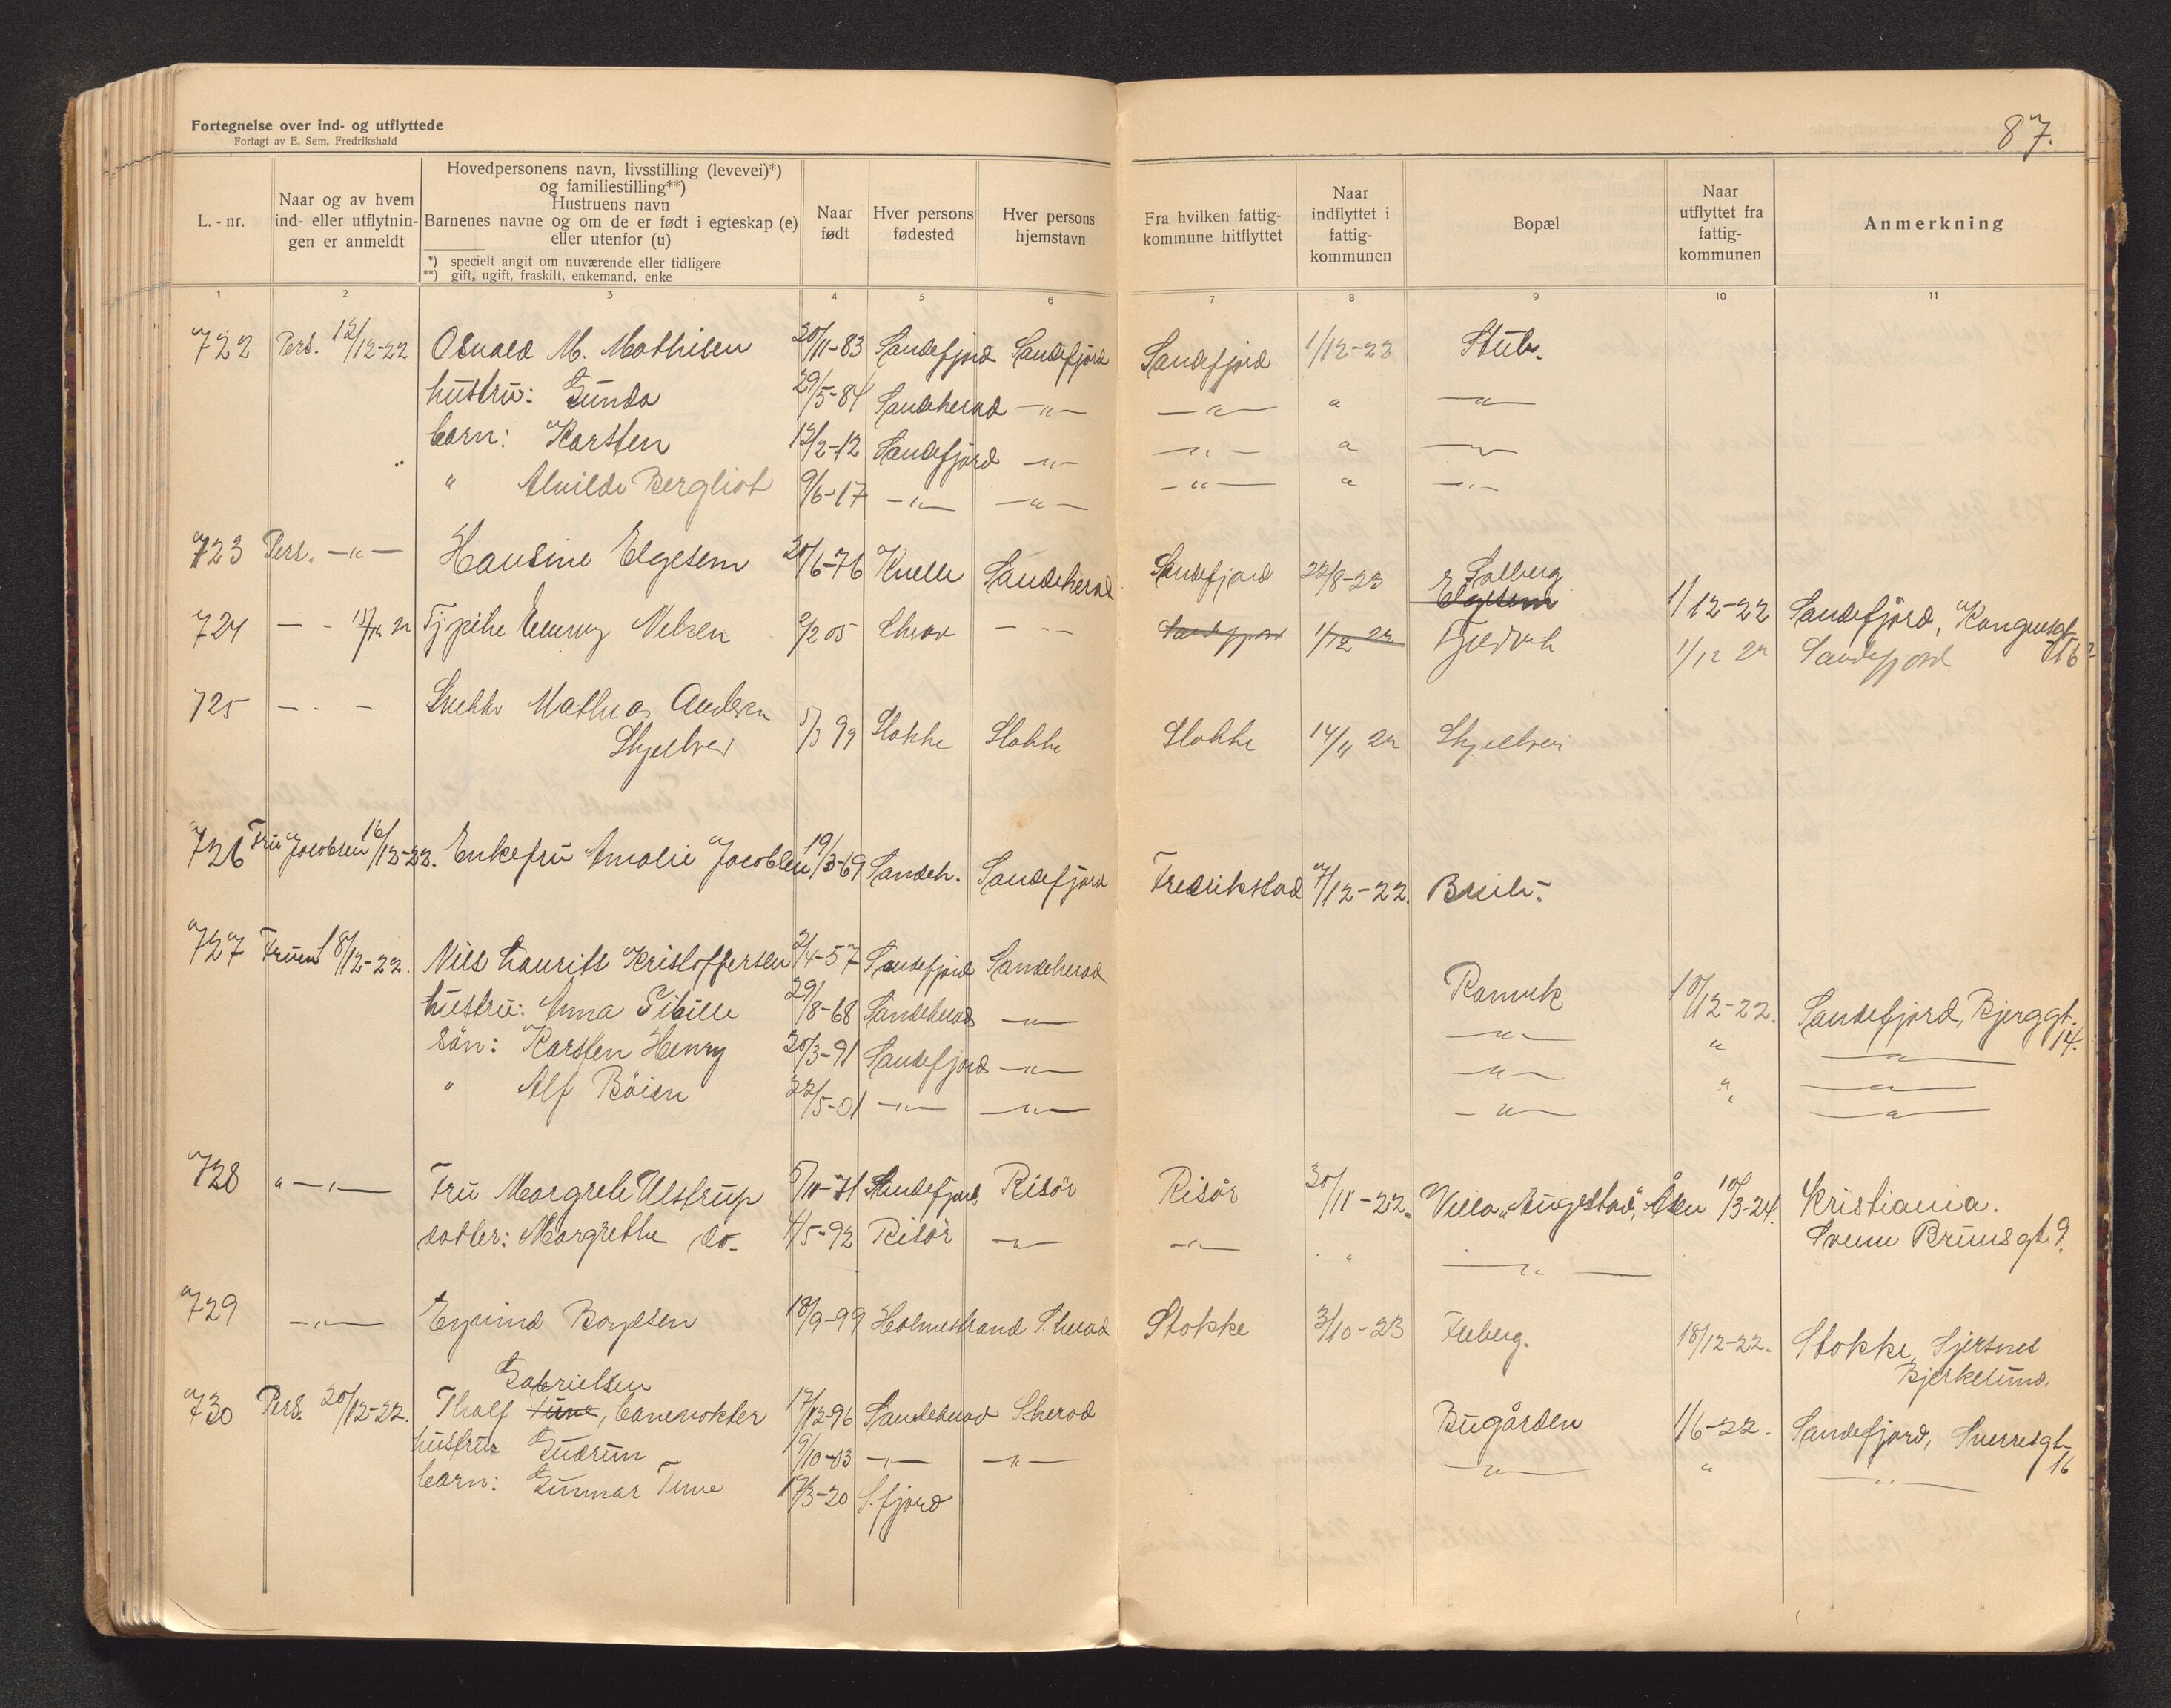 Fortegnelse over ind- og utflyttede
Forlagt av E. Sem, Fredrikshald
87.
L. - nr.
Naar og av hvem ind- eller utflytnin- gen er anmeldt
Hovedpersonens navn, livsstilling (levevei)*)
og familiestilling**)
Hustruens navn
Barnenes navne og om de er født i egteskap (e)
eller utenfor (u)
*) specielt angit om nuværende eller tidligere
**) gift, ugift, fraskilt, enkemand, enke
Naar født
Hver persons fødested
Hver persons hjemstavn
Fra hvilken fattig- kommune hitflyttet
Naar indflyttet i fattig- kommunen
Bopæl
Naar utflyttet fra fattig- kommunen
Anmerkning
1 2 3 4 5 6 7 8 9 10 11
722 Pers. 12/12-22 Osvald M. Mathisen 30/11-83 Sandefjord Sandefjord Sandefjord 1/12-22 Stub.
hustru: Gunda 29/5-84 Sandeherad —"— —"— " —"—
barn: Karsten 12/2-12 Sandefjord —"— —"— " —"—
" Alvilde Bergliot 9/6-17 —"— —"— —"— " —"—
723 Pers. —"— Hansine Elgesem 20/6-76 Sandeherad Sandefjord 22/8-23 Solberg
Elgesem 1/12-22 Sandefjord, Kongensgt.
724 — - Nilsen 2/2 05 — - — Sandefjord 1/12 22 Fjeldvik 1/12 22 Sandefjord 16
725 — - — Mathias Andersen
Skjelbred 5/3 99 Stokke Stokke Stokke 14/11 22 Skjelbred
726 Fru Jacobsen 16/12-22. Enkefru Amalie Jacobsen 19/3-69 Sandeh. Sandefjord Fredrikstad 7/12-22.
727 Fruen 18/12-22. Nils Laurits Kristoffersen 2/4-57 Sandefjord Sandeherad Ranvik 10/12-22. Sandefjord, Bjerggt.
14.
hustru: Anna Sibille 29/8-68 Sandeherad —"— —"— " —"—
søn: Karsten Henry 30/3-91 Sandefjord —"— —"— " —"—
" Alf Böien 22/5-01 —"— —"— —"— " —"—
728 " —"— Fru Margrete Ulstrup 5/11-71 Sandefjord Risör Risör 30/11-22. Villa "Augestad", Åsen 10/3-24. Kristiania.
datter: Margrethe do- 4/5-92 Risör —"— —"— " —"— Svenn Brunsgt 9.
729 —"— Eyvind Bogdsen 18/9-99 Holmestrand S.herad Stokke 3/10-23 Feberg. 18/12-22. Stokke,
Bjerkelund.
Gabrielsen
730 Pers. 20/12-22. Thalf Tune, banevokter 17/12-96 Sandeherad S.herad Bugården 1/6-22. Sandefjord, Sverresgt-
16
hustru Gudrun 19/10-03 —"— —"— —"— " —"—
barn: Gunnar Tune 17/3-20 S.fjord